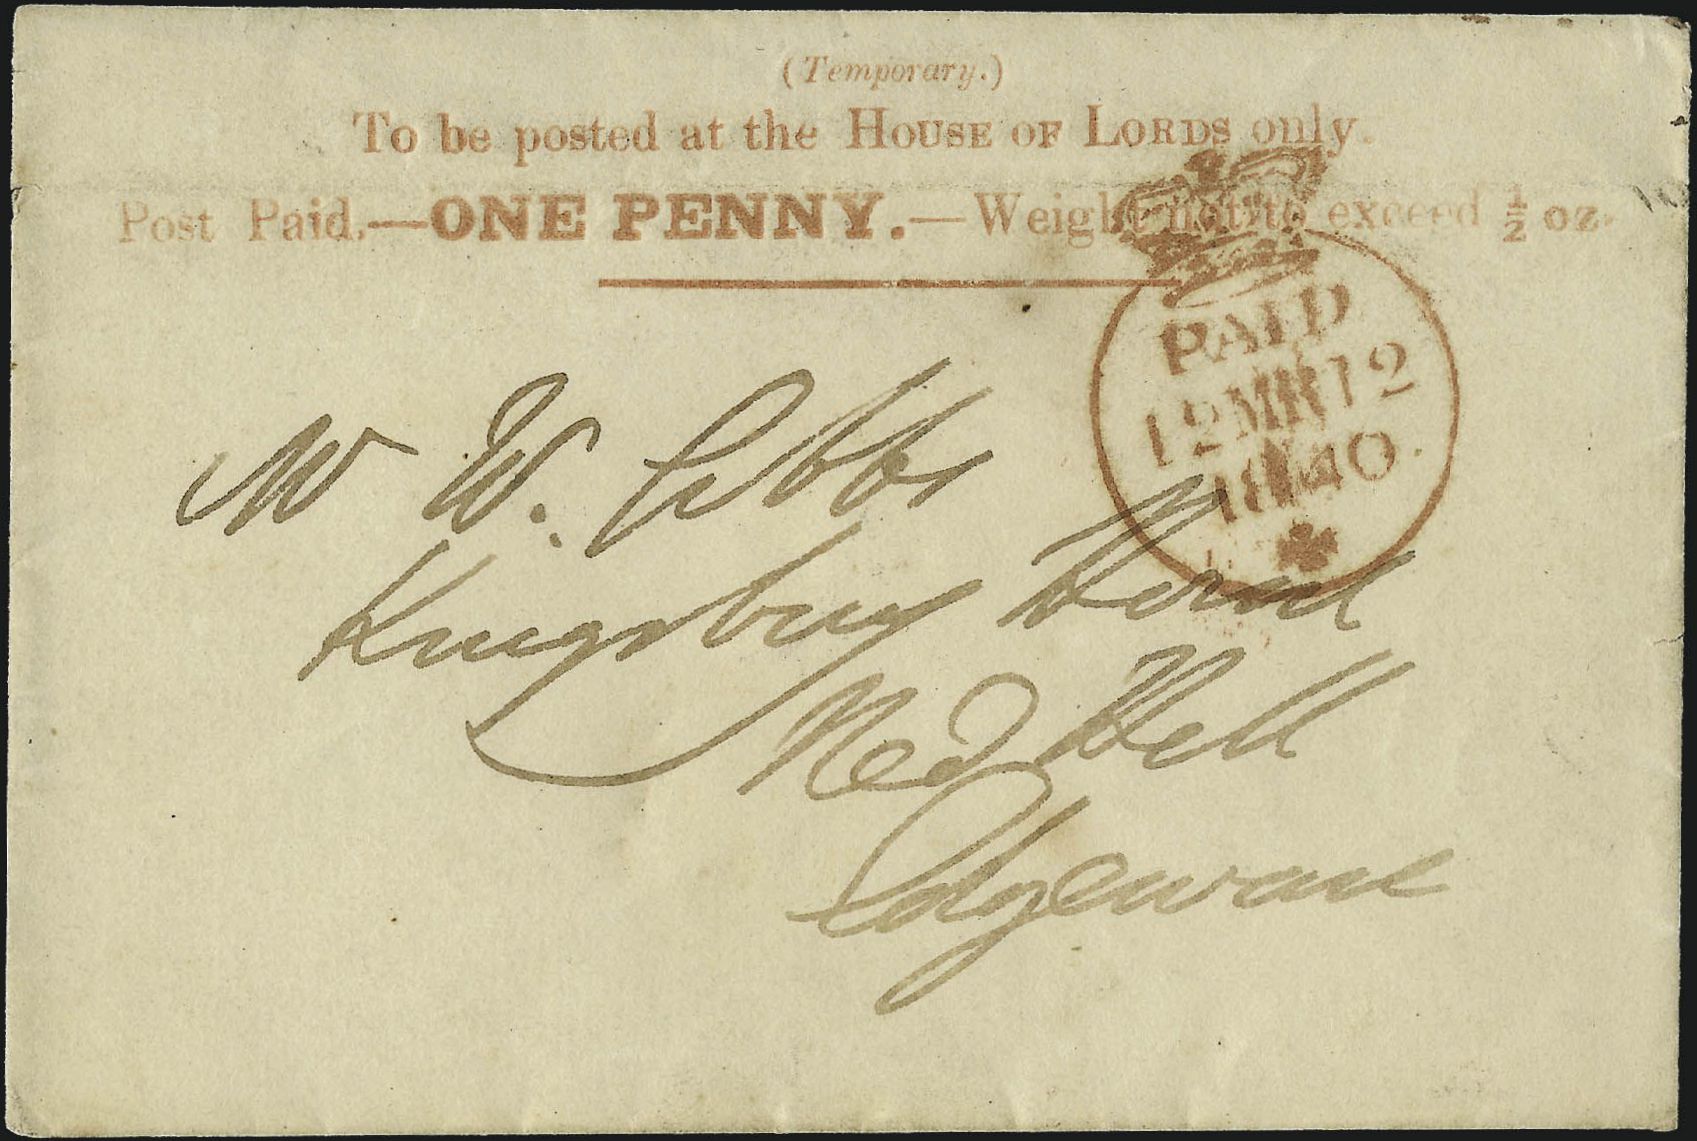 (Temporary.)
To be posted at the HOUSE OF LORDS only.
Post Paid.—ONE PENNY.—Weight not to exceed ½ oz.
PAID
12 MR 12
1840
Mr W. Gibbs
Kingsbury
Red Hill
Edgware